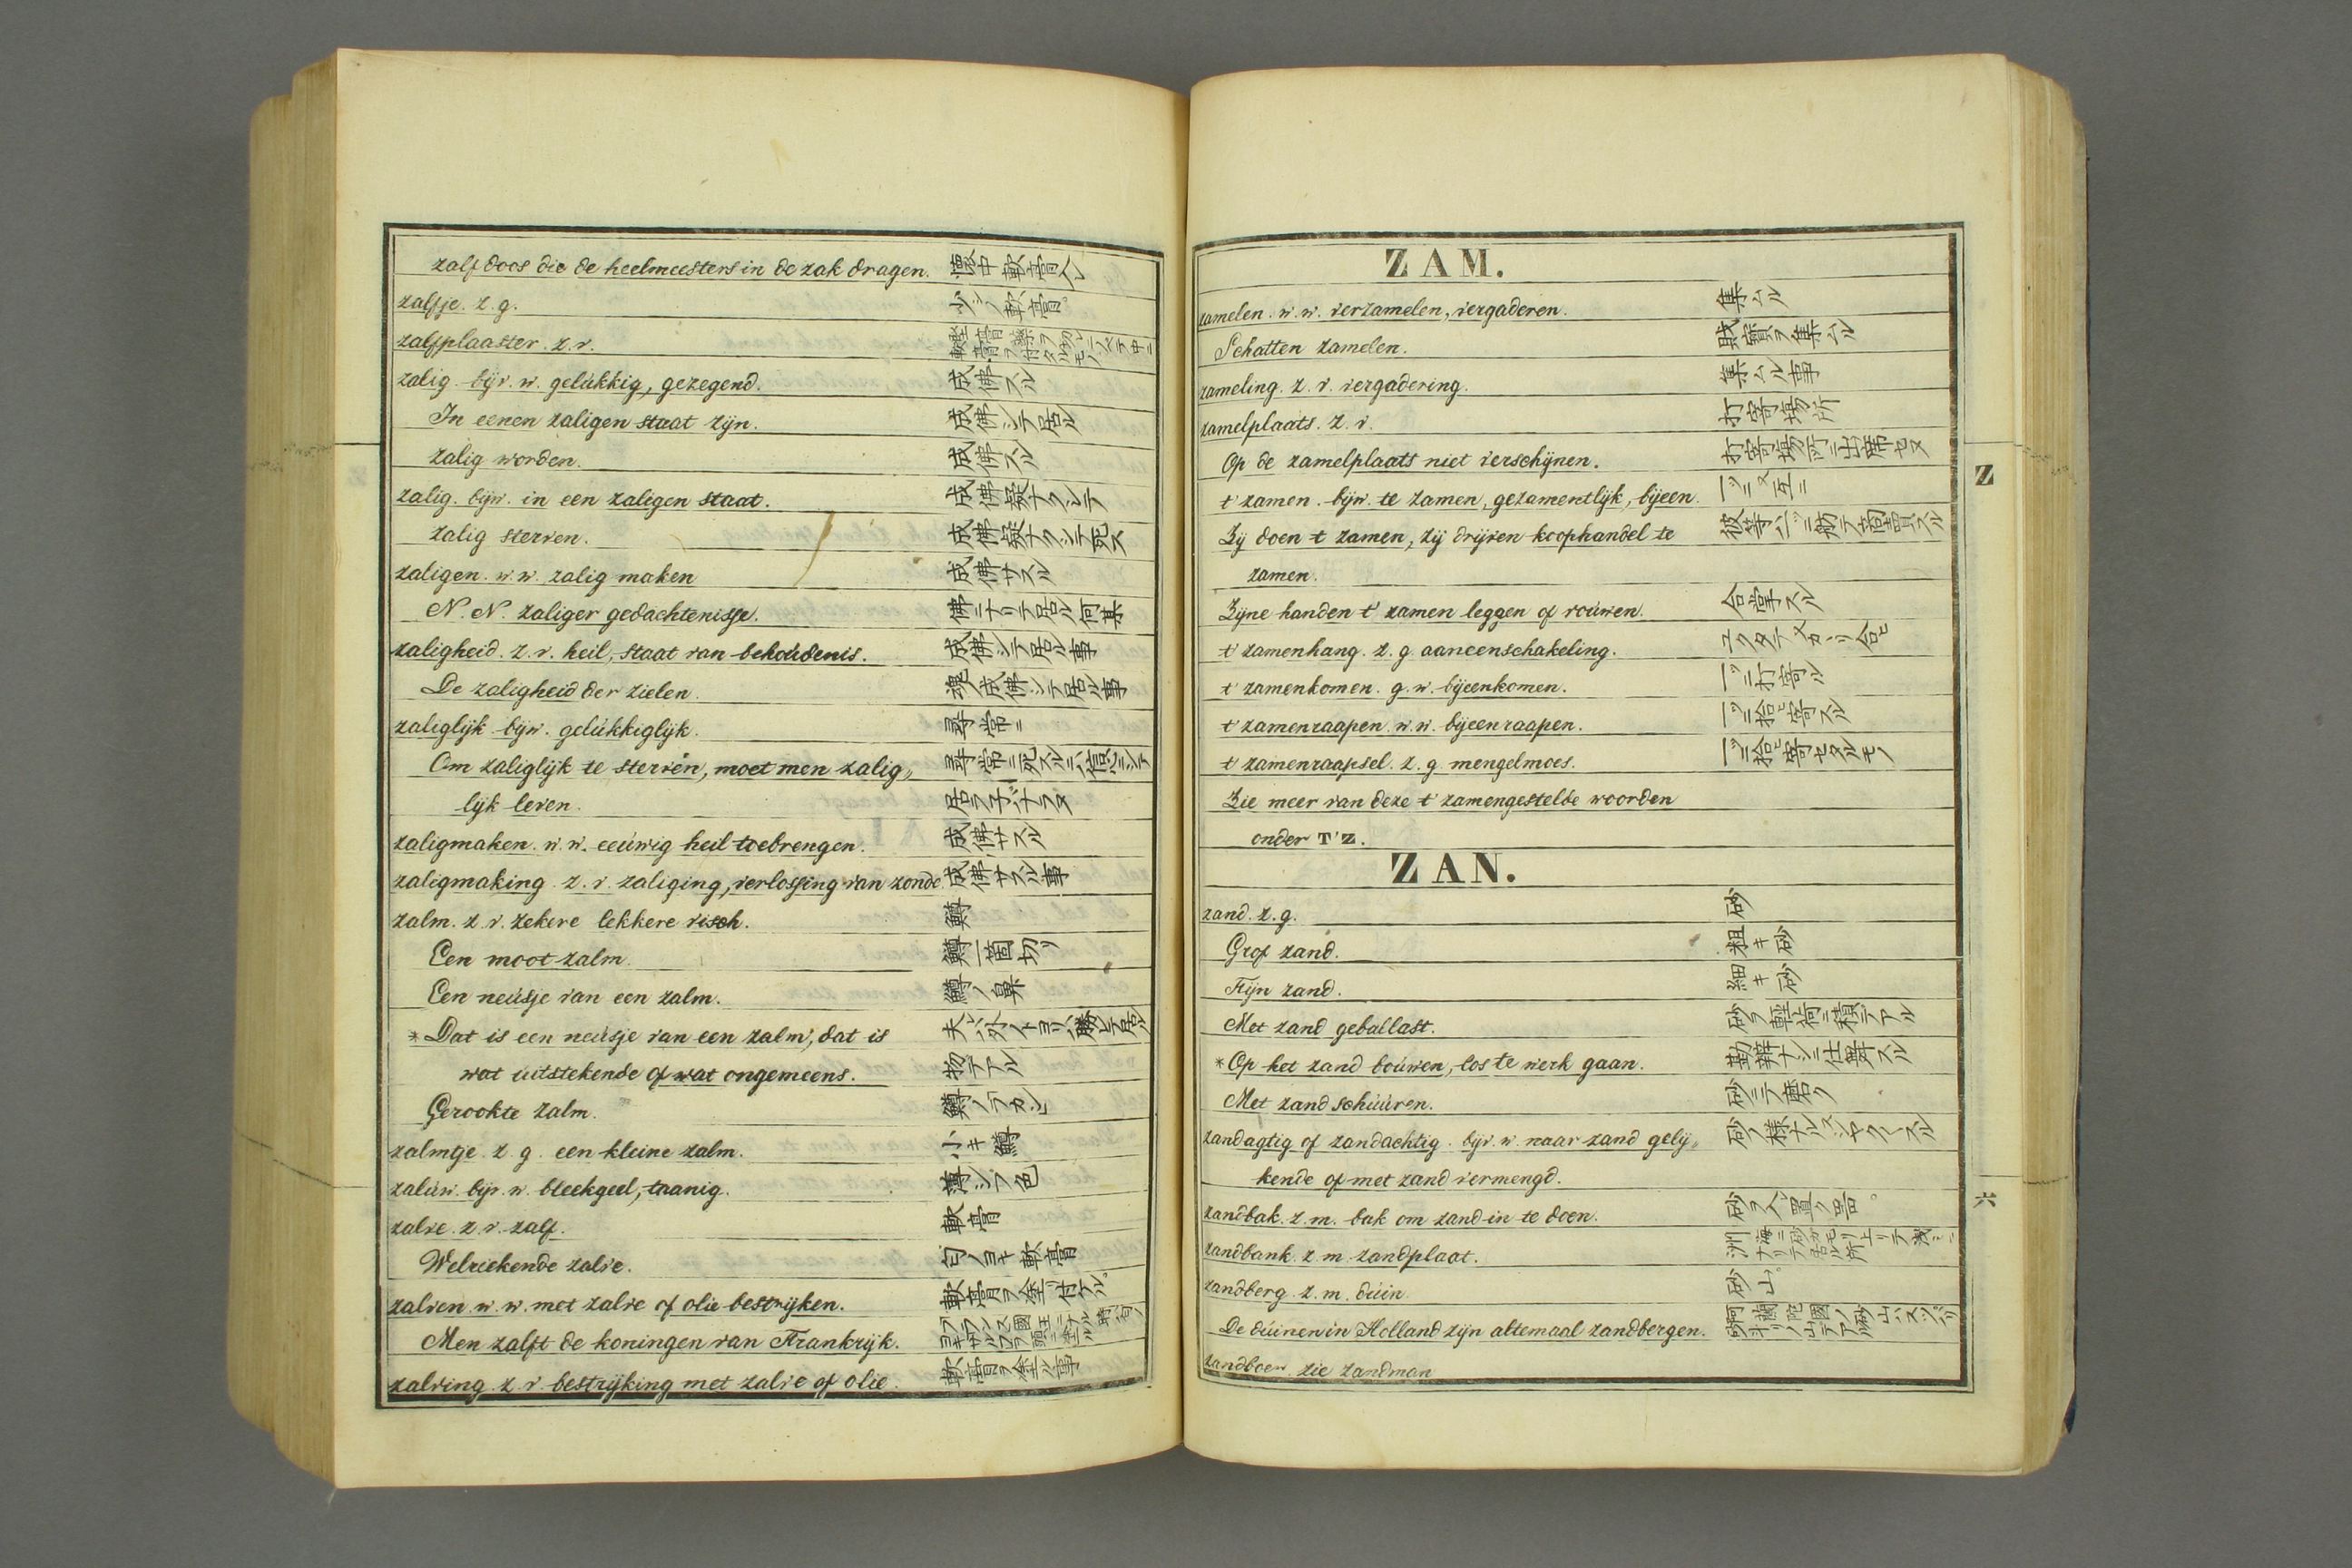 zalfdoos die de heelmeesters in de zak dragen. 懐中軟膏入レ
zalfje. z. g. 少シノ軟膏。
zalfplaaster. z. v.
zalig. bijv. w. gelúkkig, gezegend. 成佛スル
In eenen zaligen staat zijn. 成佛シテ居ル
Zalig worden. 成佛スル
zalig. bijw. in een zaligen staat. 成佛疑ナクシテ
Zalig sterven. 成佛疑ナクシテ死ス
zaligen. w. w. zalig maken 成佛サスル
N. N. zaliger gedachtenisse. 佛ニナリテ居ル何某
zaligheid. z. v. heil, staat van behoúdenis. 成佛シテ居ル事
De zaligheid der zielen. 魂ノ成佛シテ居ル事
zaliglijk. bijw. gelúkkiglijk. 尋常ニ
Om zaliglijk te sterven, moet men zalig„ 尋常ニ死スルニハ信心シテ
lijk leven. 居ラ子バナラヌ
zaligmaken. w. w. eeúwig heil toebrengen. 成佛サスル
zaligmaking. z. v. zaliging, verlossing van zonde. 成佛サスル事
zalm. z. v. zekere lekkere visch. 鱒
Een moot zalm. 鱒一箇切リ
Een neúsje van een zalm. 鱒ノ鼻
* Dat is een neúsje van een zalm, dat is 夫ハ外ノトヨリハ勝レテ居ル
wat úitstekende of wat ongemeens. 物テアル
Gerookte zalm.
zalmtje. z. g. een kleine zalm. 小キ鱒
zalúw. bijv. w. bleekgeel, taanig. 薄シブ色
zalve. z. v. zalf. 軟膏
Welriekende zalve. 匂ノヨキ軟膏
zalven. w. w. met zalve of olie bestrijken. 軟膏ヲ塗リ付ケル。
Men zalft de koningen van Frankrijk.
zalving. z. v. bestrijking met zalve of olie. 軟膏ヲ塗ル事
ZAM.
zamelen. w. w. verzamelen, vergaderen. 集ムル
Schatten zamelen. 財寳ヲ集ムル
zameling. z. v. vergadering. 集ムル事
zamelplaats. z. v. 打寄場所
Op de zamelplaats niet verschijnen. 打寄場所ニ出席セヌ
t' zamen. bijw. te zamen, gezamentlijk, bijeen. 一ツニ 又 互ニ
Zij doen t zamen, zij drijven koophandel te 彼等ハ一ツニ舫テ商賣スル
zamen.
Zijne handen t' zamen leggen of voúwen. 合掌スル
t' zamenhang. z. g. aaneenschakeling.
t' zamenkomen. g. w. bijeenkomen. 一ツニ打寄ル
t' zamenraapen. w. w. bijeenraapen. 一ツニ拾ヒ寄スル
t' zamenraapsel. z. g. mengelmoes. 一ツニ拾ヒ寄セタルモノ
Zie meer van deze t' zamengestelde woorden
onder T'Z.
ZAN.
zand. z. g. 砂
Grof zand. 粗キ砂
Fijn zand. 細キ砂
Met zand geballast. 砂ヲ軽荷ニ積テアル
* Op het zand boúwen, los te werk gaan. 勤辨ナシニ仕事スル
Met zand schúúren. 砂ニテ磨ク
zandagtig of zandachtig. bijv. w. naar zand gelij„
kende of met zand vermengd.
zandbak. z. m. bak om zand in te doen. 砂ヲ入レ置ク器。
zandbank. z. m. zandplaat.
zandberg. z. m. dúin. 砂山。
De dúinen in Holland zijn altemaal zandbergen.
zandboer. zie zandman
Z
六